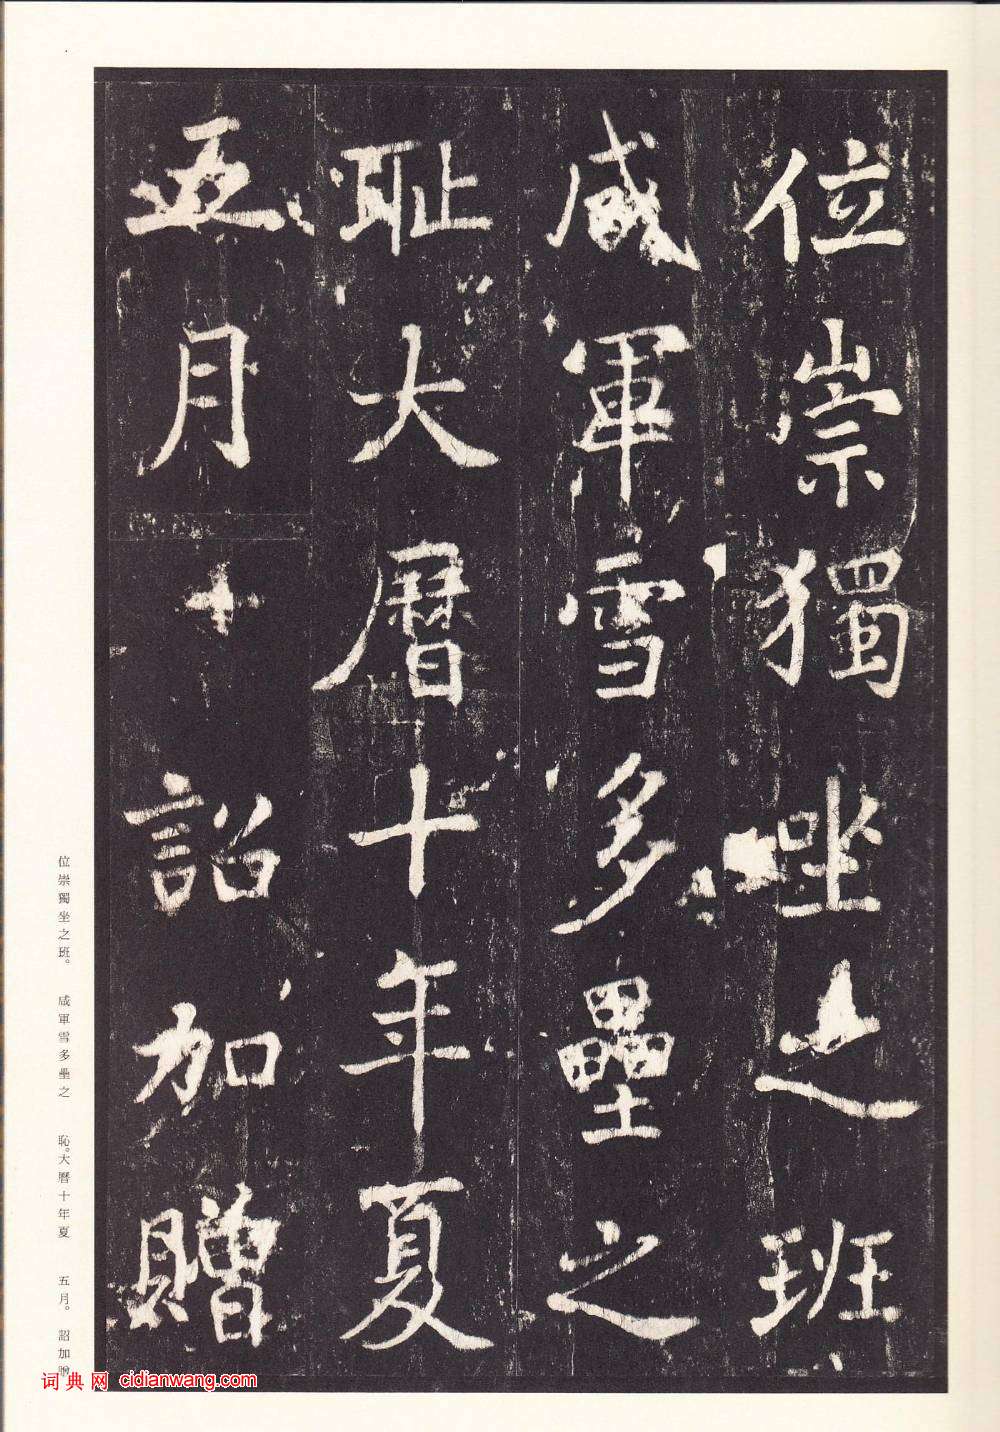 位崇獨坐之班
咸軍雪多壘之
耻大曆十年夏
五月十詔加贈
位崇獨坐之班。 咸軍雪多壘之 恥。大曆十年夏 五月。 詔加贈
词典网 cidianwang.com